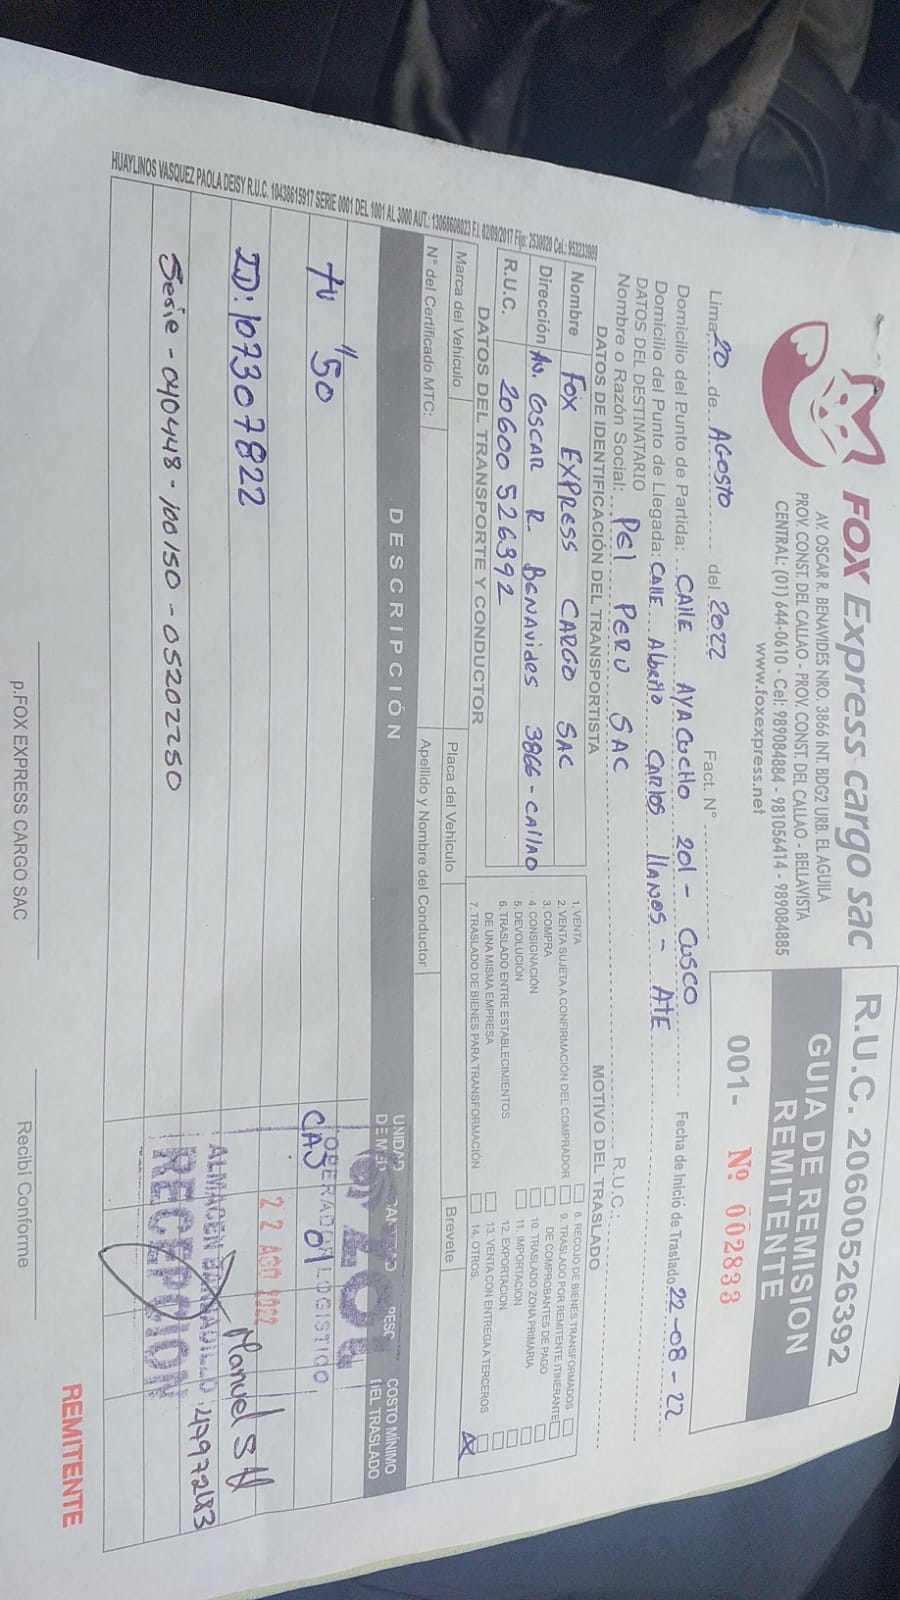 FOX Express cargo sac
AV. OSCAR R. BENAVIDES NRO. 3866 INT. BDG2 URB. EL AGUILA
PROV. CONST. DEL CALLAO - PROV. CONST. DEL CALLAO - BELLAVISTA
CENTRAL: (01) 644-0610 - Cel: 989084884 - 981056414 - 989084885
www.foxexpress.net
R.U.C. 20600526392
GUIA DE REMISION
REMITENTE
001- Nº 002833
Lima, 20 de AGOSTO del 2022 Fact. N°
Domicilio del Punto de Partida: CAllE AYACUCHO 201 - CUSCO Fecha de Inicio de Traslado 22-08-22
Domicilio del Punto de Llegada: CAllE Alberto CARlos llANOS - AtE
DATOS DEL DESTINATARIO
Nombre o Razón Social: PEl PERU SAC R.U.C.:
DATOS DE IDENTIFICACIÓN DEL TRANSPORTISTA
Nombre FOX EXPRESS CARGO SAC
Dirección AV. OSCAR R. BENAVIDES 3866 - CAllAO
R.U.C. 20600526392
MOTIVO DEL TRASLADO
1. VENTA
2. VENTA SUJETA A CONFIRMACIÓN DEL COMPRADOR
3. COMPRA
4. CONSIGNACIÓN
5. DEVOLUCIÓN
6. TRASLADO ENTRE ESTABLECIMIENTOS
DE UNA MISMA EMPRESA
7. TRASLADO DE BIENES PARA TRANSFORMACIÓN
8. RECOJO DE BIENES TRANSFORMADOS
9. TRASLADO POR REMITENTE ITINERANTE
DE COMPROBANTES DE PAGO
10. TRASLADO ZONA PRIMARIA
11. IMPORTACION
12. EXPORTACION
13. VENTA CON ENTREGA A TERCEROS
14. OTROS. X
DATOS DEL TRANSPORTE Y CONDUCTOR
Marca del Vehiculo Placa del Vehiculo Brevete
N° del Certificado MTC: Apellido y Nombre del Conductor
DESCRIPCIÓN UNIDAD DE MED. PESO COSTO MÍNIMO DEL TRASLADO
tv "50 CAJ 01
OPERADOR LOGISTICO
ID: 107307822
22 AGO 2022
ALMACEN
Manuel S
47972483
Serie - 040448 - 100150 - 05202250
RECEPCION
p.FOX EXPRESS CARGO SAC
Recibí Conforme
REMITENTE
HUAYLINOS VASQUEZ PAOLA DEISY R.U.C. 10438615917 SERIE 0001 DEL 1001 AL 3000 AUT.: 13068608023 F.I. 02/09/2017 Fijo: 2538020 Cel.: 953233989